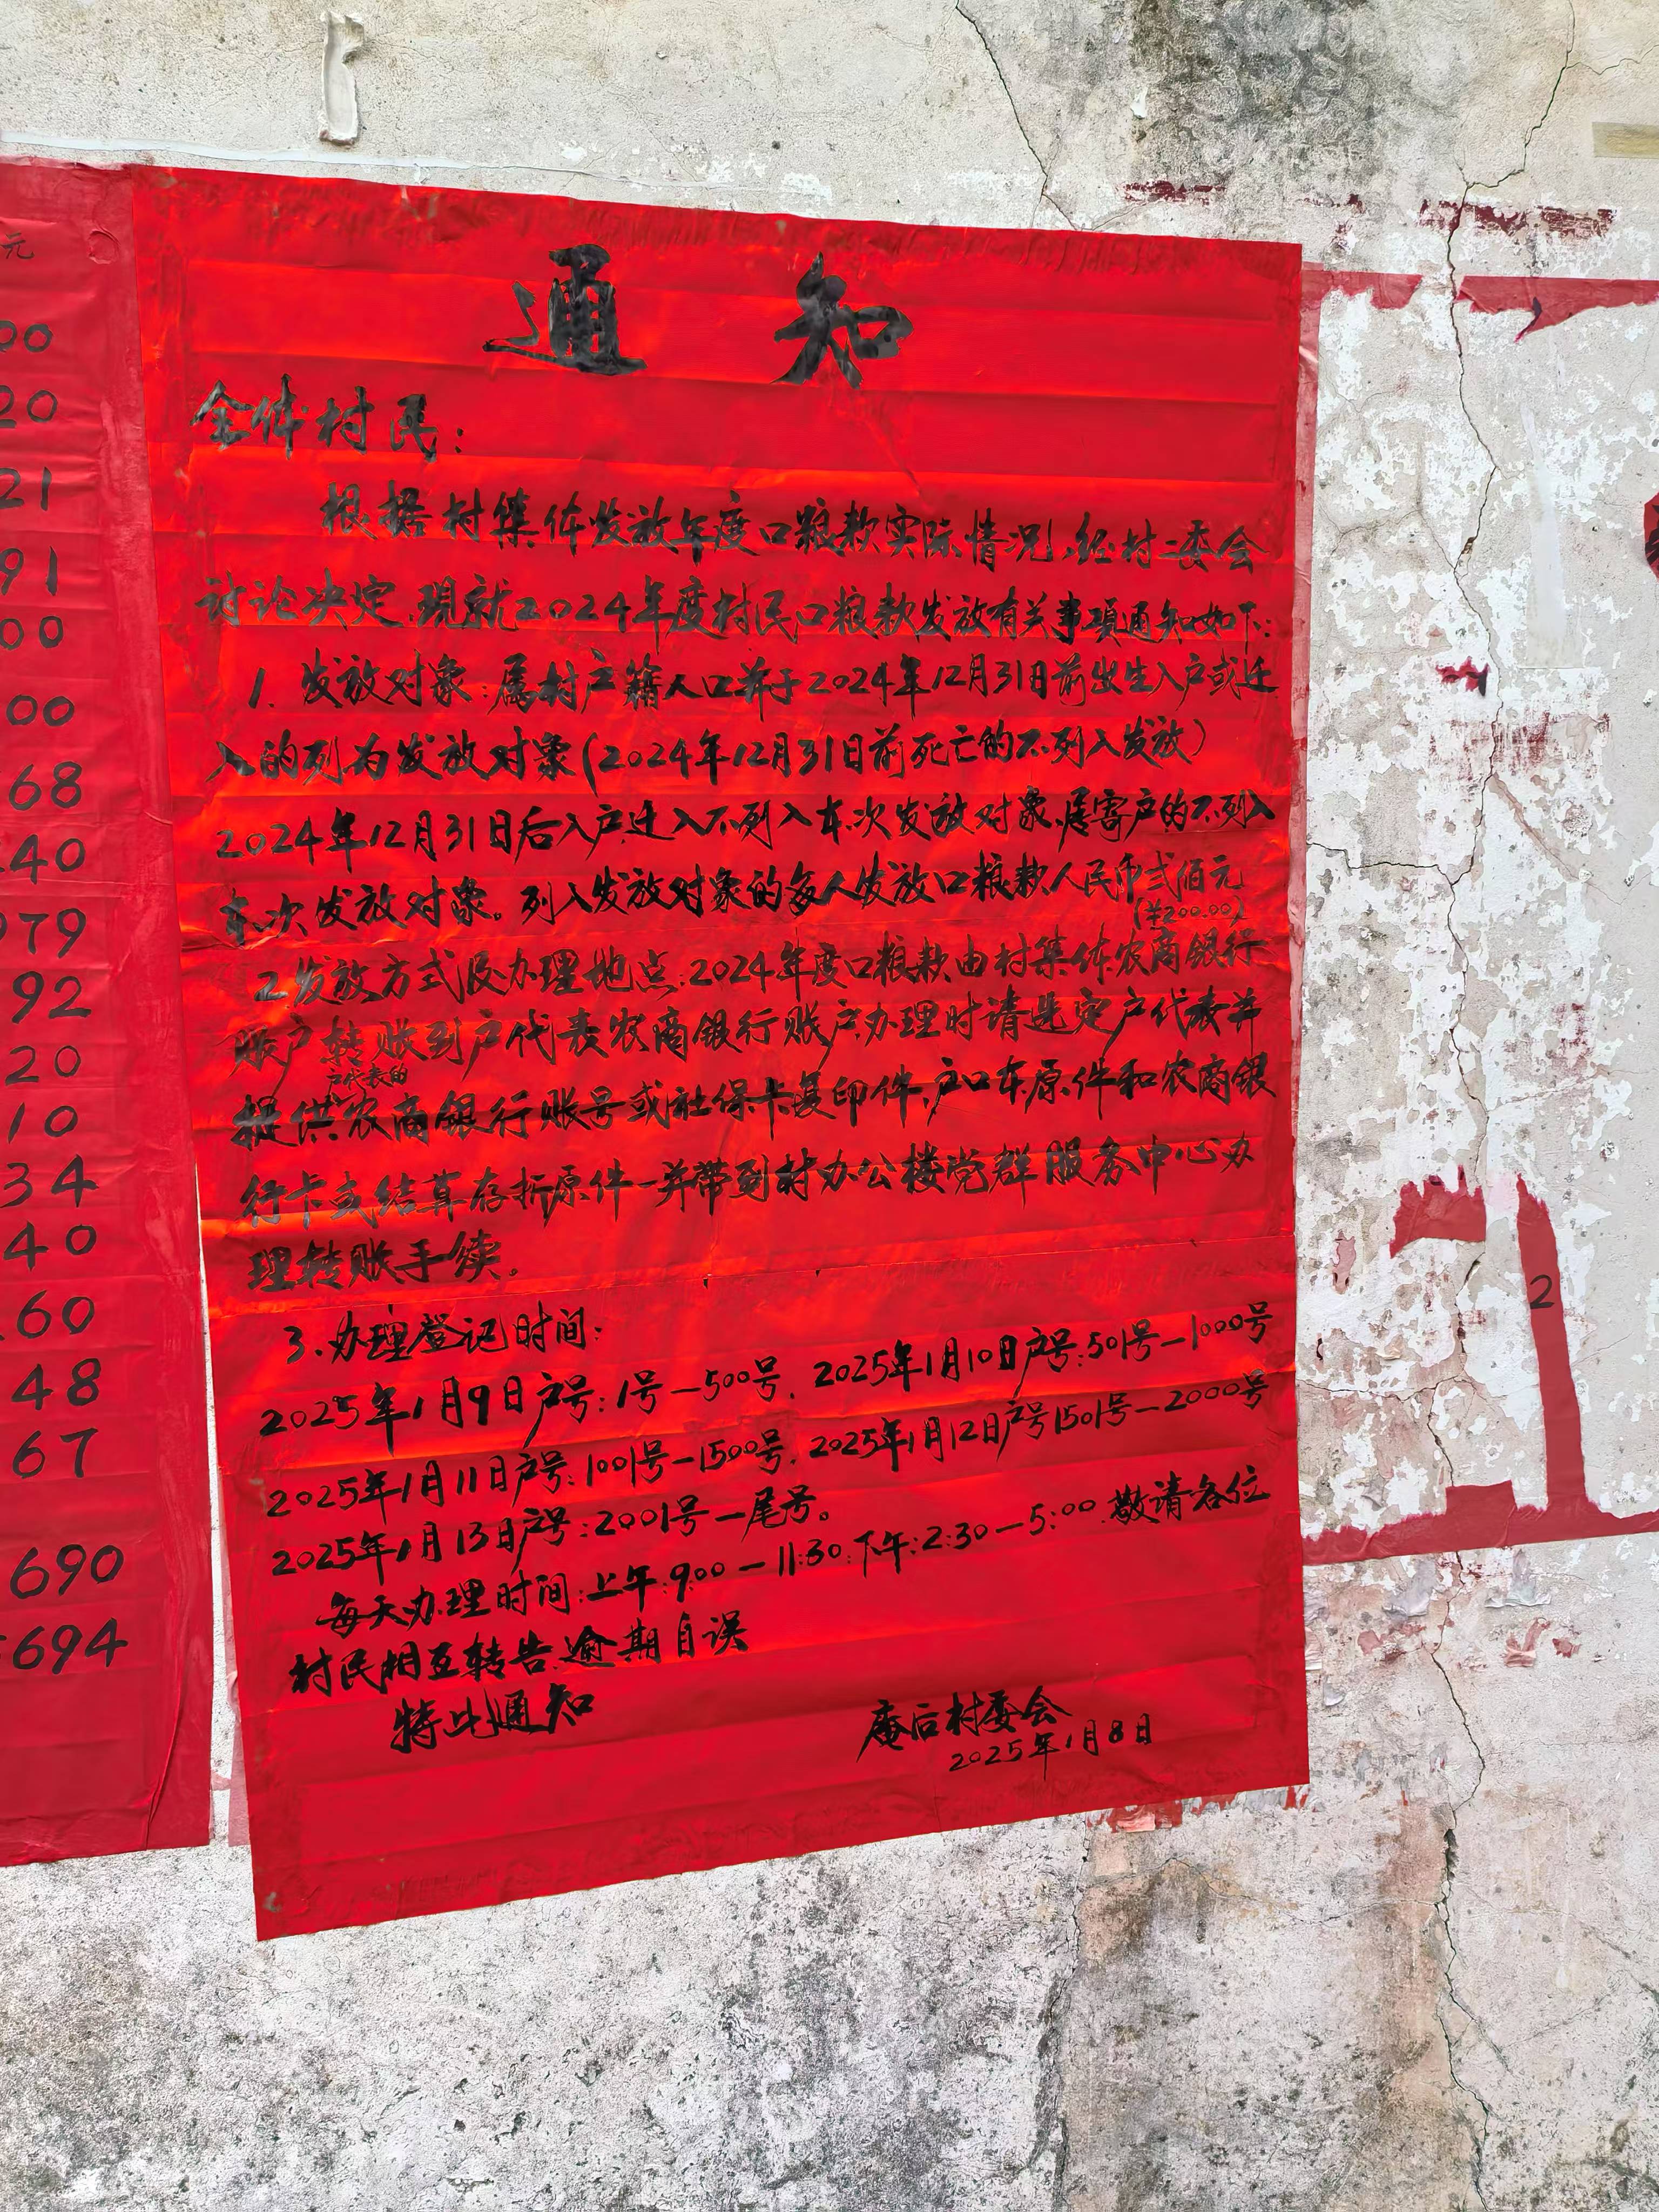 元
00
20
21
91
00
00
68
40
979
92
20
10
34
40
60
48
67
690
694
通知
全体村民：
根据村集体发放年度口粮款实际情况，经村二委会
讨论决定，现就2024年度村民口粮款发放有关事项通知如下：
1. 发放对象：属村户籍人口并于2024年12月31日前出生入户或迁
入的列为发放对象（2024年12月31日前死亡的不列入发放）
2024年12月31日后入户迁入不列入本次发放对象，属寄户的不列入
本次发放对象。列入发放对象的每人发放口粮款人民币贰佰元
（¥200.00）
2.发放方式及办理地点：2024年度口粮款由村集体农商银行
账户转账到户代表农商银行账户，办理时请选定户代表并
户代表的
提供农商银行账号或社保卡复印件，户口本原件和农商银
行卡或结算存折原件一并带到村办公楼党群服务中心办
理转账手续。
3.办理登记时间：
2025年1月9日户号：1号—500号，2025年1月10日户号：501号—1000号
2025年1月11日户号：1001号—1500号，2025年1月12日户号1501号—2000号
2025年1月13日户号：2001号—尾号。
每天办理时间：上午：9:00—11:30，下午：2:30—5:00，敬请各位
村民相互转告，逾期自误
特此通知
庵后村委会
2025年1月8日
2